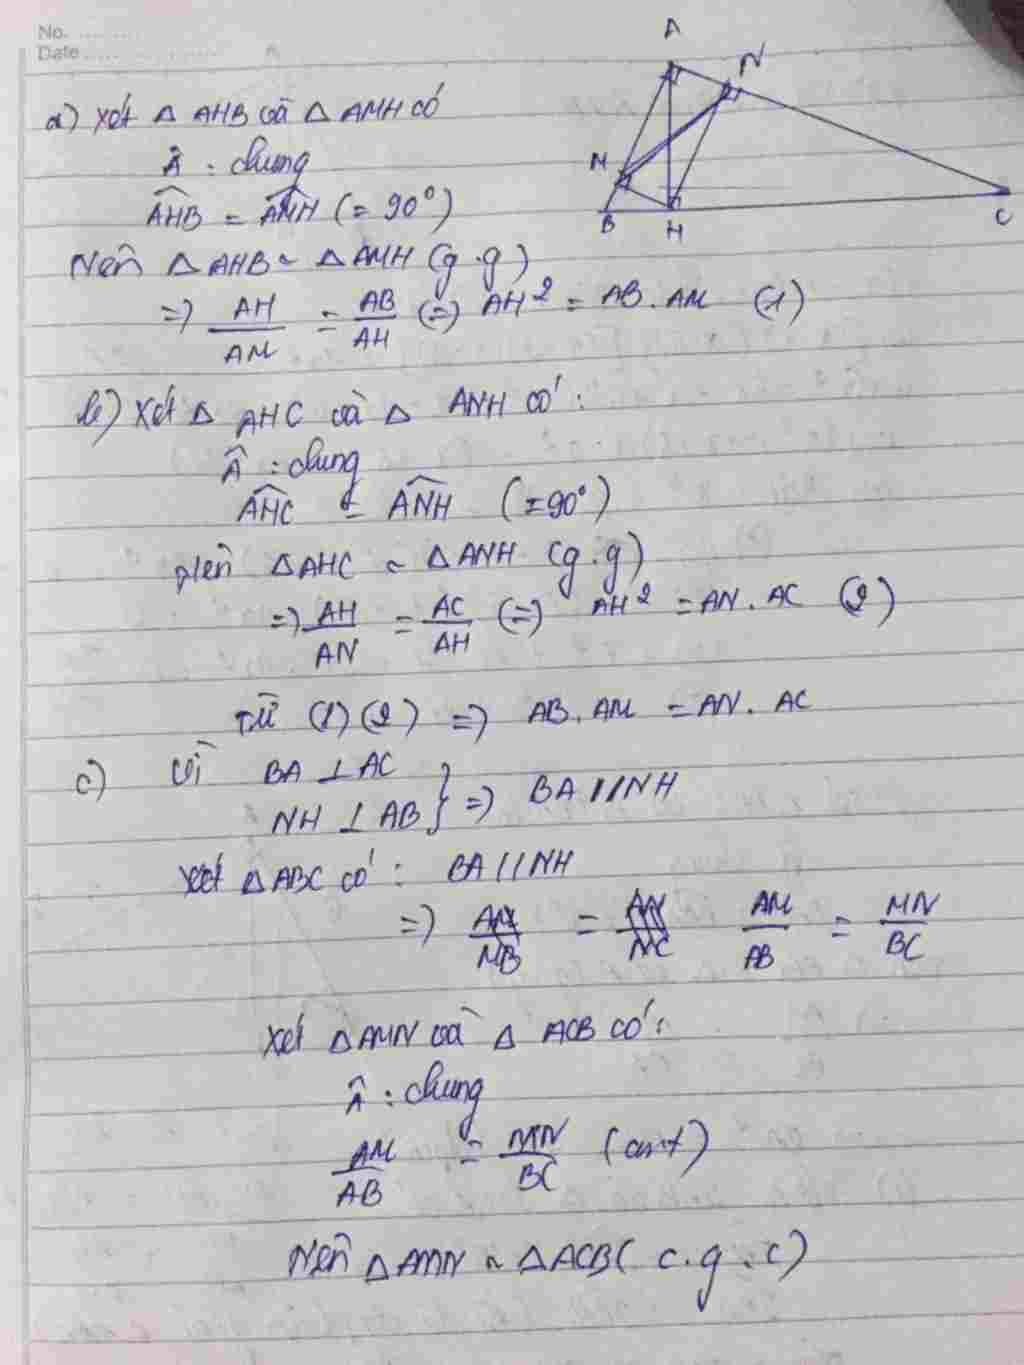 No. ..........
Date ....................
A
N
M
B
H
C
a) Xét △ AHB và △ AMH có
Â : chung
AHB = AMH (= 90°)
Nên △ AHB ~ △ AMH (g.g)
=> AH/AM = AB/AH (=> AH² = AB. AM (1)
b) Xét △ AHC và △ ANH có :
Â : chung
AHC = ANH (=90°)
nên △AHC ~ △ANH (g.g)
=> AH/AN = AC/AH (=> AH² = AN. AC (2)
Từ (1)(2) => AB. AM = AN. AC
c) Vì BA ⊥ AC
NH ⊥ AB } => BA // NH
Xét △ABC có : BA // NH
=> AM/MB = AN/NC AM/AB = MN/BC
Xét △AMN và △ ACB có :
Â : chung
AM/AB = MN/BC (cmt)
Nên △AMN ~ △ACB ( c.g.c)